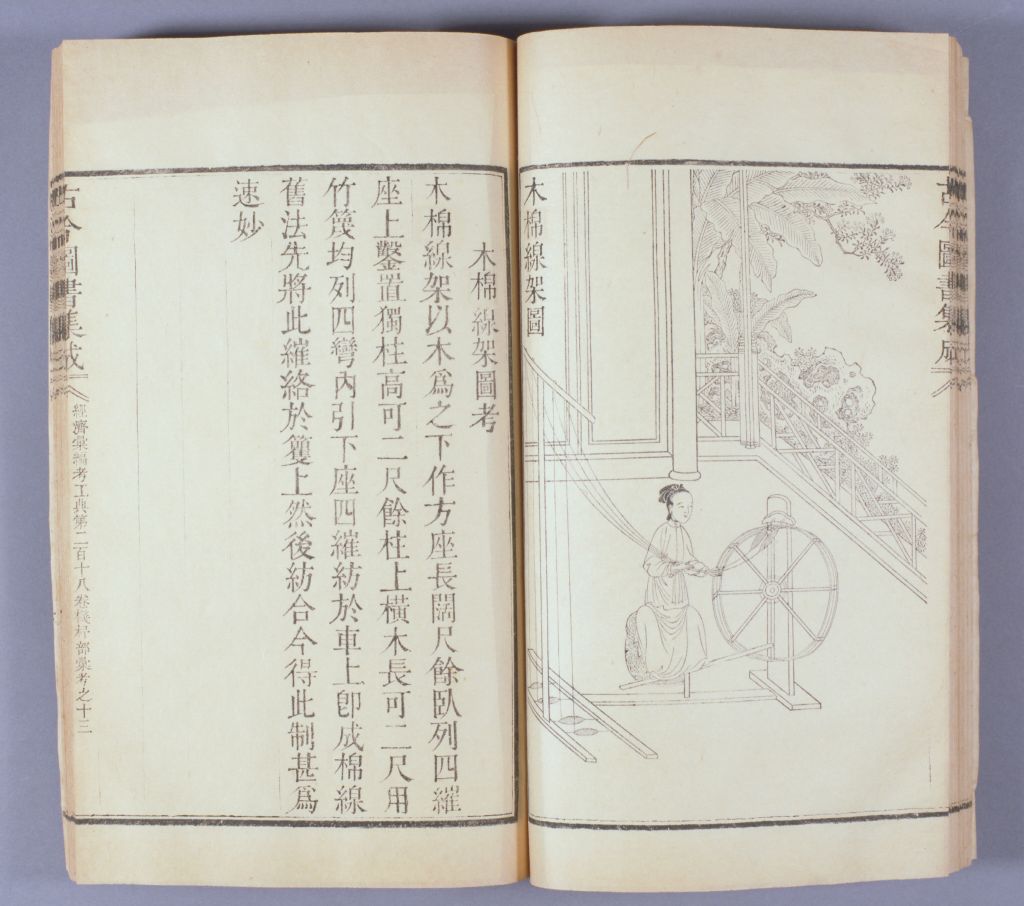 古今圖書集成
木棉線架圖
木棉線架圖考
木棉線架以木爲之下作方座長闊尺餘臥列四維
座上鑿置獨柱高可二尺餘柱上橫木長可二尺用
竹篾均列四彎內引下座四維紡於車上卽成棉線
舊法先將此維絡於籰上然後紡合今得此制甚爲
速妙
古今圖書集成
經濟彙編考工典第二百十八卷機杼部彙考之十三